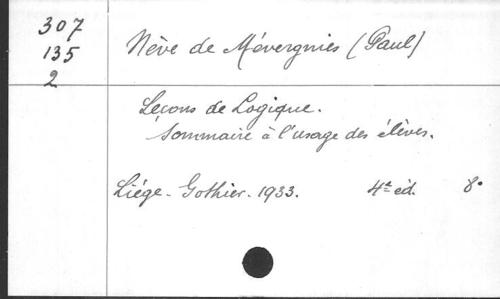 307
135
2
Nève de Mévergnies (Paul)
Leçons de Logique.
Sommaire à l'usage des élèves.
Liége - Gothier. 1933. 4e éd. 8°